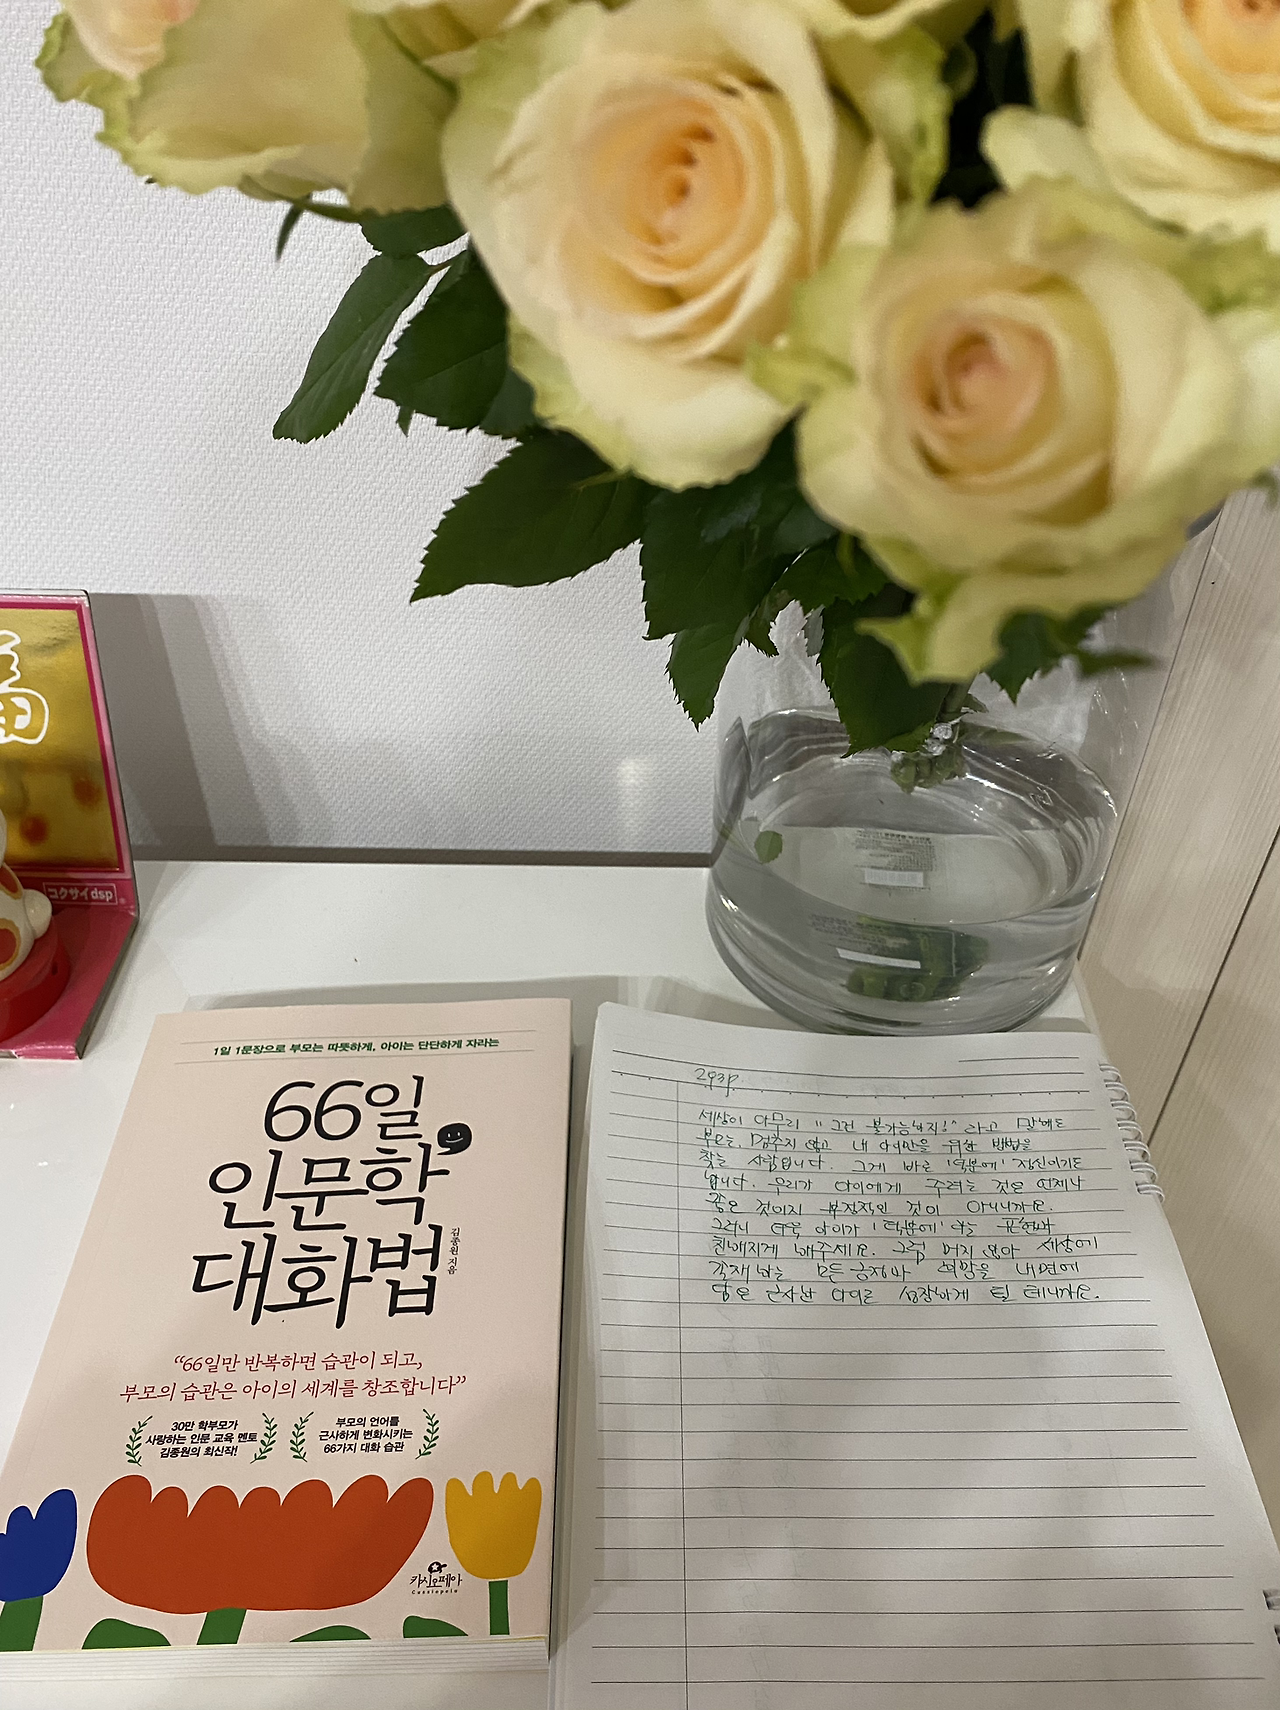 福
コクサイdsp
1일 1문장으로 부모는 따뜻하게, 아이는 단단하게 자라는
66일
인문학
대화법
김종원 지음
“66일만 반복하면 습관이 되고,
부모의 습관은 아이의 세계를 창조합니다”
30만 학부모가
사랑하는 인문 교육 멘토
김종원의 최신작!
부모의 언어를
근사하게 변화시키는
66가지 대화 습관
카시오페아
Cassiopeia
293p
세상이 아무리 "그건 불가능하지!" 라고 말해도
부모는 멈추지 않고 내 아이만을 위한 방법을
찾는 사람입니다. 그게 바로 '덕분에' 정신이기도
합니다. 우리가 아이에게 주려는 것은 언제나
좋은 것이지 부정적인 것이 아니니까요.
그러니 더욱 아이가 '덕분에'라는 표현과
친해지게 해주세요. 그럼 머지 않아 세상에
존재하는 모든 긍정과 희망을 내면에
담은 근사한 아이로 성장하게 될 테니까요.